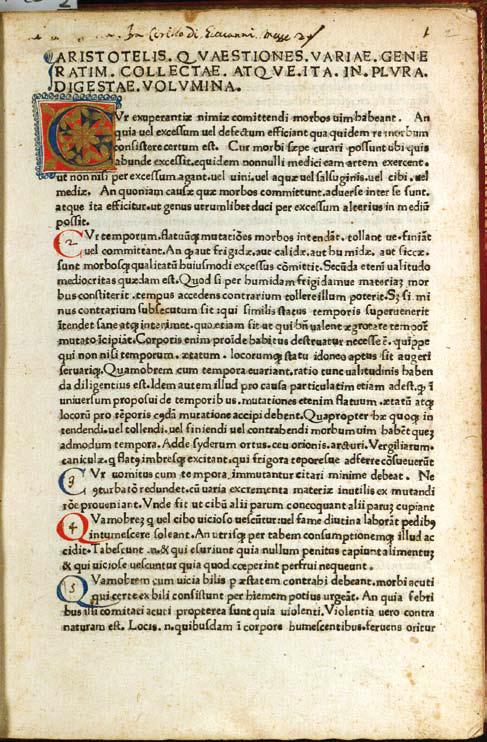 2
1
ARISTOTELIS. QVAESTIONES. VARIAE. GENE
RATIM. COLLECTAE. ATQVE. ITA. IN. PLVRA.
DIGESTAE. VOLVMINA.
CVr exuperantiæ nimiæ comittendi morbos uim habeant. An
quia uel excessum uel defectum efficiant qua quidem re morbum
consistere certum est. Cur morbi sæpe curari possunt ubi quis
abunde excessit. equidem nonnulli medici eam artem exercent.
ut non nisi per excessum agant. uel uini. uel aquæ uel salsuginis. uel cibi. uel
mediæ. An quoniam causæ quæ morbos committunt. aduersæ inter se sunt.
atque ita efficitur. ut genus utrumlibet duci per excessum alterius in mediũ
possit.
CVr temporum. flatuũq; mutatiões morbos intendãt. tollant ue. finiãt
uel committant. An q aut frigidæ. aut calidæ. aut humidæ. aut siccæ.
sunt morbosq; qualitatũ huiusmodi excessus cõmittit. Secũda etenĩ ualitudo
mediocritas quædam est. Quod si per humidam frigidamue materiaz mor
bus constiterit. tempus accedens contrarium tollere illum poterit. Sz si mi
nus contrarium subsecutum sit
mutato
qui non nisi temporum. ætatum. locorumq; statu idoneo aptus sit augeri
seruariq;. Quamobrem cum tempora euariant. ratio tunc ualitudinis haben
da diligentius est. Idem autem illud pro causa particulatim etiam adest. q ĩ
uniuersum proposui de temporibus. mutationes etenim flatuum. ætatũ atq;
locorũ pro tẽporis mutatione accipi debent. Quapropter hæ quoq; in
tendendi. uel tollendi. uel finiendi uel contrahendi morbum uim habẽt quez
admodum tempora. Adde syderum ortus. ceu orionis. arcturi. Vergiliarum.
caniculæ. q flatꝰ imbresq; excitant. qui frigora teporesue adferre cõsueuerũt
3 CVr uomitus cum tempora immutantur citari minime debeat. Ne
redundet. cũ uaria excrementa materiæ inutilis ex mutandi
rõe proueniant. Vnde fit ut cibũ alii parum concoquant alii parũ cupiant
4 QVamobrez q uel cibo uicioso uescũtur. uel fame diutina laborãt pedibꝰ
intumescere soleant. An utrisq; per tabem consumptionemq; illud ac
cidit. Tabescunt .n. & qui esuriunt quia nullum penitus capiunt alimentuz
& qui uiciose uescuntur quia quod cœperint perfrui nequeunt.
5 QVamobrem cum uicia bilis p æstatem contrahi debeant. morbi acuti
qui certe ex bili consistunt per hiemem potius urgeãt. An quia febri
bus isti comitati acuti propterea sunt quia uiolenti. Violentia uero contra
naturam est. Locis .n. quibusdam ĩ corpore humescentibus. feruens oritur